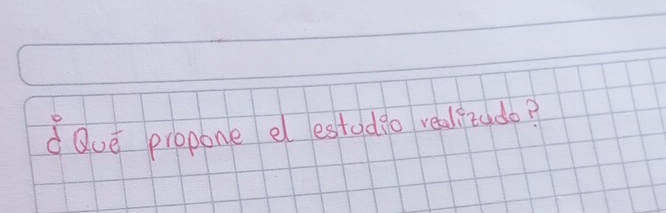 ¿Qué propone el estudio realizado?